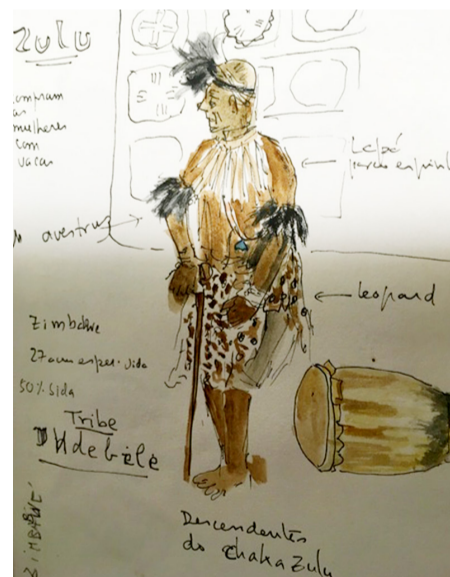 ZULU
compram
as
mulheres
com
vacas
avestruz
leopard
Zimbabwe
27 anos esper. vida
50% sida
Tribe
Ndebèlé
Descendentes
do Chaka Zulu